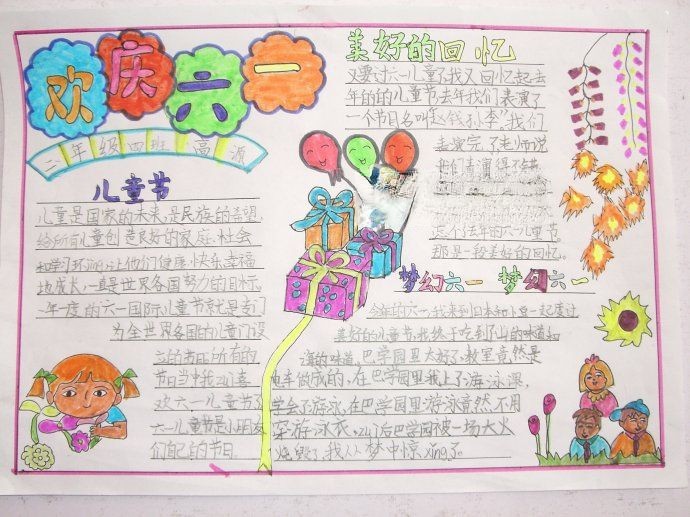 欢庆六一
二年级四班 高源
儿童节
儿童是国家的未来,是民族的希望,
给所有儿童创造良好的家庭、社会
和学习环境,让他们健康、快乐、幸福
地成长,一直是世界各国努力的目标,
一年一度的六一国际儿童节就是专门
为全世界各国的儿门设
立的节日,所有的
节日当中我zui喜
欢六一儿童节了
六一儿童节是小朋友
们自己的节日。
美好的回忆
又要过六一儿童了我又回忆起去
年的的儿童节去年我们表演了
一个节目名叫“赵钱孙李”。我们
表演完了老师说
他们表演得不错
这个去年的六一儿童节。
那是一段美好的回忆。
梦幻六一 梦幻六一
今年的六一我来到日本和卜豆一起度过
美好的儿童节,我终于吃到了山的味道和
海的味道,巴学园里太好了,教室竟然是
电车做成的,在巴学园里我上了游泳课,
学会了游泳,在巴学园里游泳竟然不用
穿游泳衣,zui后巴学园被一场大火
烧毁了,我从梦中惊xing了。